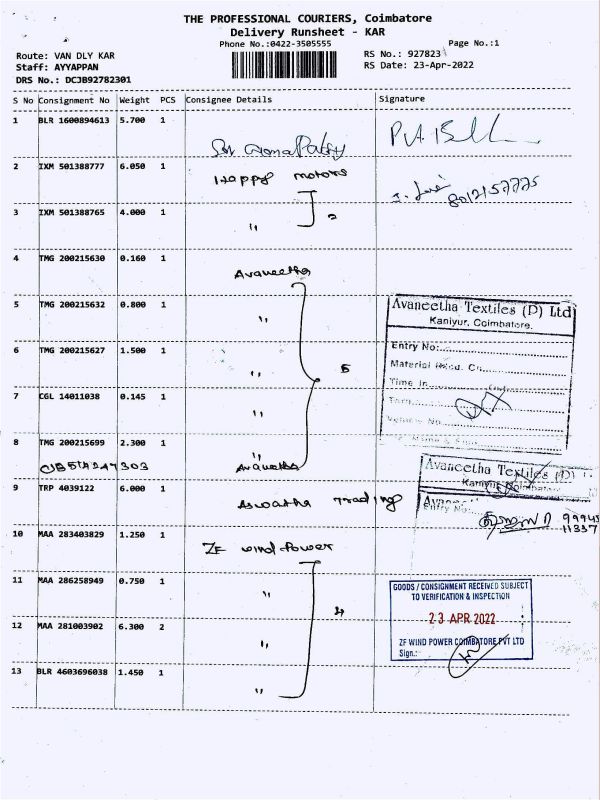 THE PROFESSIONAL COURIERS, Coimbatore
Delivery Runsheet - KAR
Phone No.:0422-3505555
Page No.:1
Route: VAN DLY KAR
RS No.: 927823
Staff: AYYAPPAN
RS Date: 23-Apr-2022
DRS No.: DCJB92782301
S No Consignment No Weight PCS Consignee Details Signature
1 BLR 1600894613 5.700 1
2 IXM 501388777 6.050 1 Happy motors
8012157775
3 IXM 501388765 4.000 1 " 2
4 TMG 200215630 0.160 1 Avaneetha
5 TMG 200215632 0.800 1 "
Avaneetha Textiles (P) Ltd
Kaniyur, Coimbatore.
6 TMG 200215627 1.500 1 " 5
Entry No:
Material Recd. On
Time In
7 CGL 14011038 0.145 1 "
Vehicle No
8 TMG 200215699 2.300 1 "
Avaneetha
Avaneetha Textiles (P)
Kaniyur, Coimbatore
9 TRP 4039122 6.000 1 Aswatha Trading
Entry No:
99945
11337
10 MAA 283403829 1.250 1 ZF wind Power
11 MAA 286258949 0.750 1 "
GOODS / CONSIGNMENT RECEIVED SUBJECT
TO VERIFICATION & INSPECTION
23 APR 2022
12 MAA 281003902 6.300 2 " 4
ZF WIND POWER COIMBATORE PVT LTD
Sign.:
13 BLR 4603696038 1.450 1 "